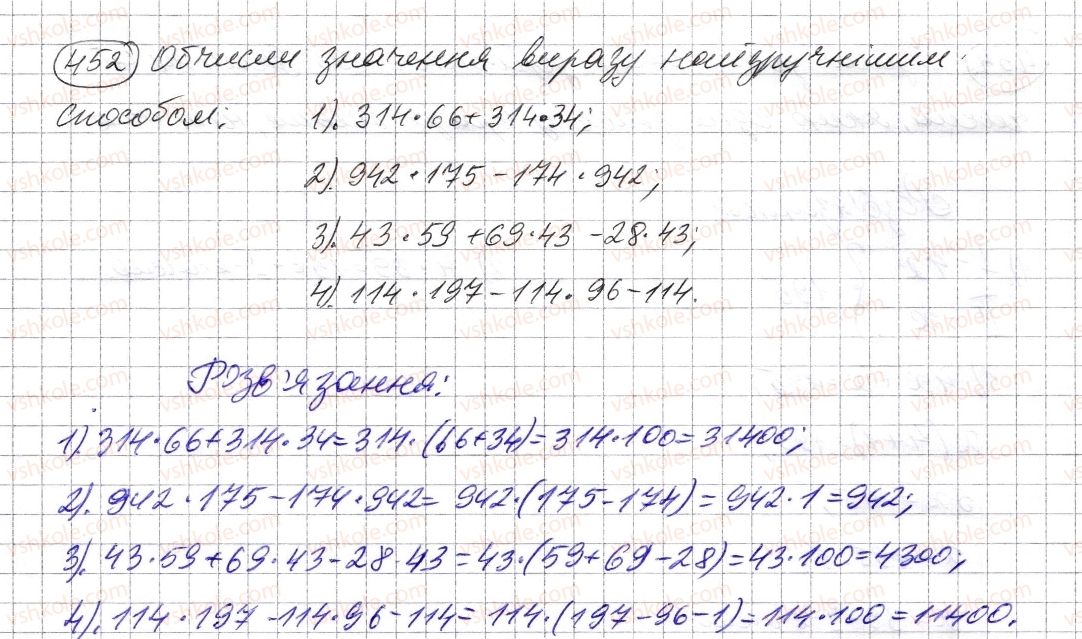 452 Обчисли значення виразу найзручнішим
способом: 1). 314·66+314·34;
2). 942·175-174·942;
3). 43·59+69·43-28·43;
4). 114·197-114·96-114.
Розв'язання:
1). 314·66+314·34=314·(66+34)=314·100=31400;
2). 942·175-174·942=942·(175-174)=942·1=942;
3). 43·59+69·43-28·43=43·(59+69-28)=43·100=4300;
4). 114·197-114·96-114=114·(197-96-1)=114·100=11400.